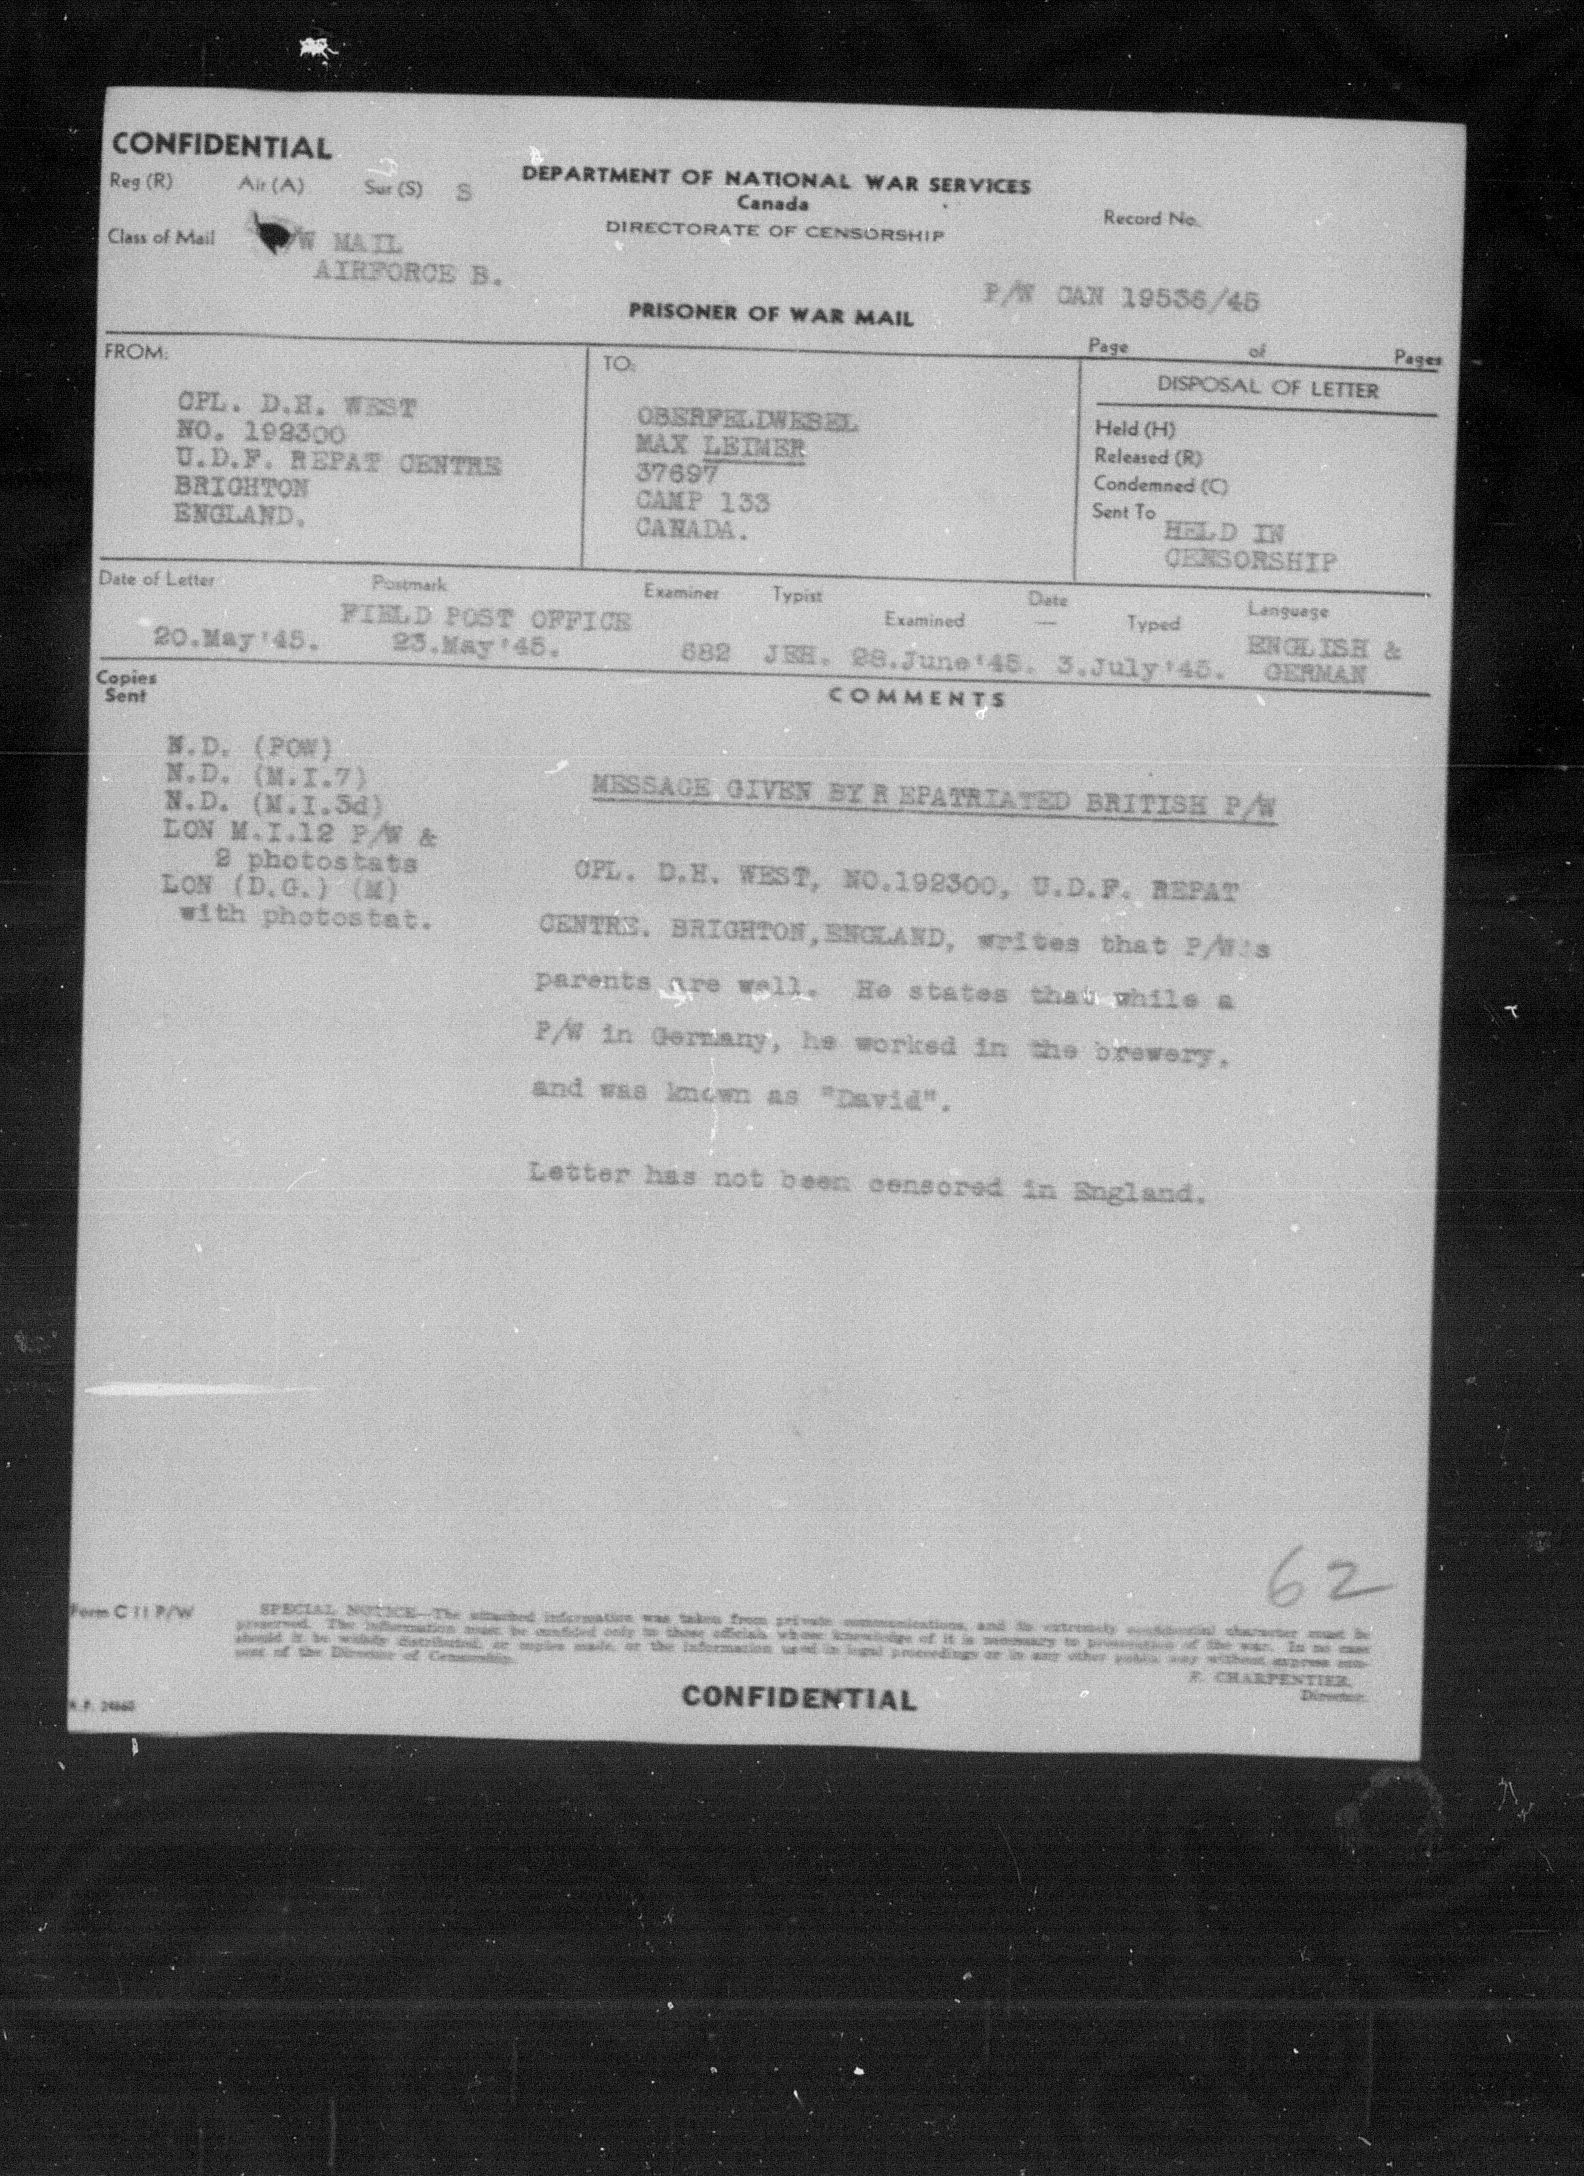 CONFIDENTIAL
Reg (R) Air (A) Sur (S) S
DEPARTMENT OF NATIONAL WAR SERVICES
Canada
DIRECTORATE OF CENSORSHIP
Record No.
Class of Mail /W MAIL
AIRFORCE B.
P/W CAN 19536/45
PRISONER OF WAR MAIL
Page of Pages
FROM:
CPL. D.H. WEST
NO. 192300
U.D.F. REPAT CENTRE
BRIGHTON
ENGLAND.
TO:
OBERFELDWEBEL
MAX LEIMER
37697
CAMP 133
CANADA.
DISPOSAL OF LETTER
Held (H)
Released (R)
Condemned (C)
Sent To
HELD IN
CENSORSHIP
Date of Letter Postmark Examiner Typist Date Language
Examined — Typed
FIELD POST OFFICE ENGLISH &
20.May'45. 23.May'45. 682 JEH. 28.June'45. 3.July'45. GERMAN
Copies
Sent
COMMENTS
N.D. (POW)
N.D. (M.I.7)
N.D. (M.I.3d)
LON M.I.12 P/W &
2 photostats
LON (D.G.) (M)
with photostat.
MESSAGE GIVEN BY R EPATRIATED BRITISH P/W
CPL. D.H. WEST, NO.192300, U.D.F. REPAT
CENTRE. BRIGHTON,ENGLAND, writes that P/W's
parents are well. He states that while a
P/W in Germany, he worked in the brewery,
and was known as "David".
Letter has not been censored in England.
62
Form C 11 P/W
SPECIAL NOTICE—The attached information was taken from private communications, and its extremely confidential character must be
preserved. The information must be confided only to those officials whose knowledge of it is necessary to prosecution of the war. In no case
should it be widely distributed, or copies made, or the information used in legal proceedings or in any other public way without express con-
sent of the Director of Censorship.
F. CHARPENTIER,
Director.
CONFIDENTIAL